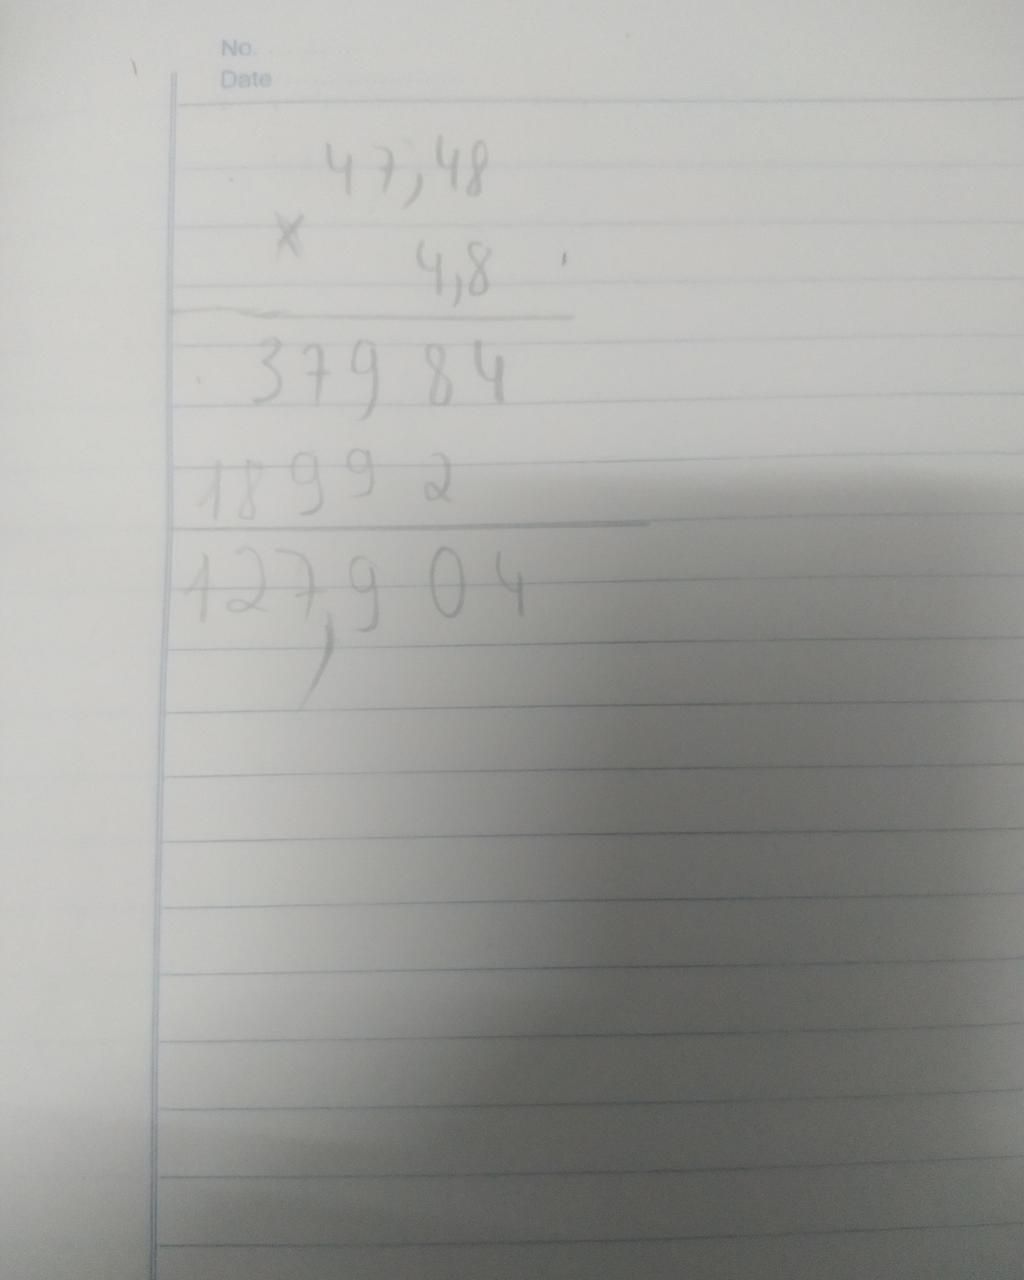 No.
Date
47,48
x
4,8
37984
18992
127,904